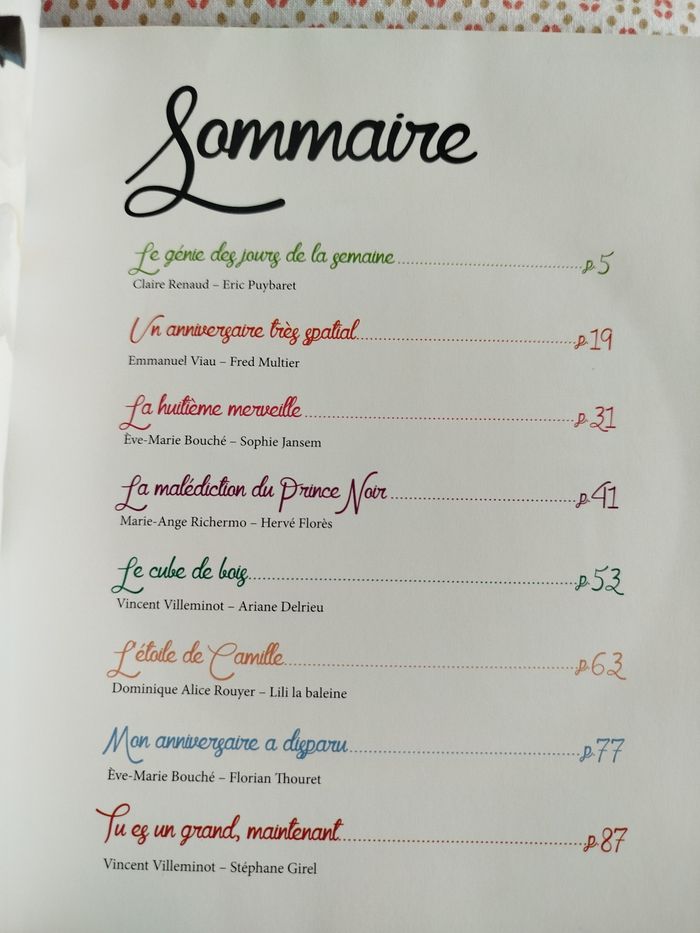 Sommaire
Le génie des jours de la semaine p.5
Claire Renaud – Eric Puybaret
Un anniversaire très spatial p.19
Emmanuel Viau – Fred Multier
La huitième merveille p.31
Ève-Marie Bouché – Sophie Jansem
La malédiction du Prince Noir p.41
Marie-Ange Richermo – Hervé Florès
Le cube de bois p.53
Vincent Villeminot – Ariane Delrieu
L'étoile de Camille p.63
Dominique Alice Rouyer – Lili la baleine
Mon anniversaire a disparu p.77
Ève-Marie Bouché – Florian Thouret
Tu es un grand, maintenant p.87
Vincent Villeminot – Stéphane Girel